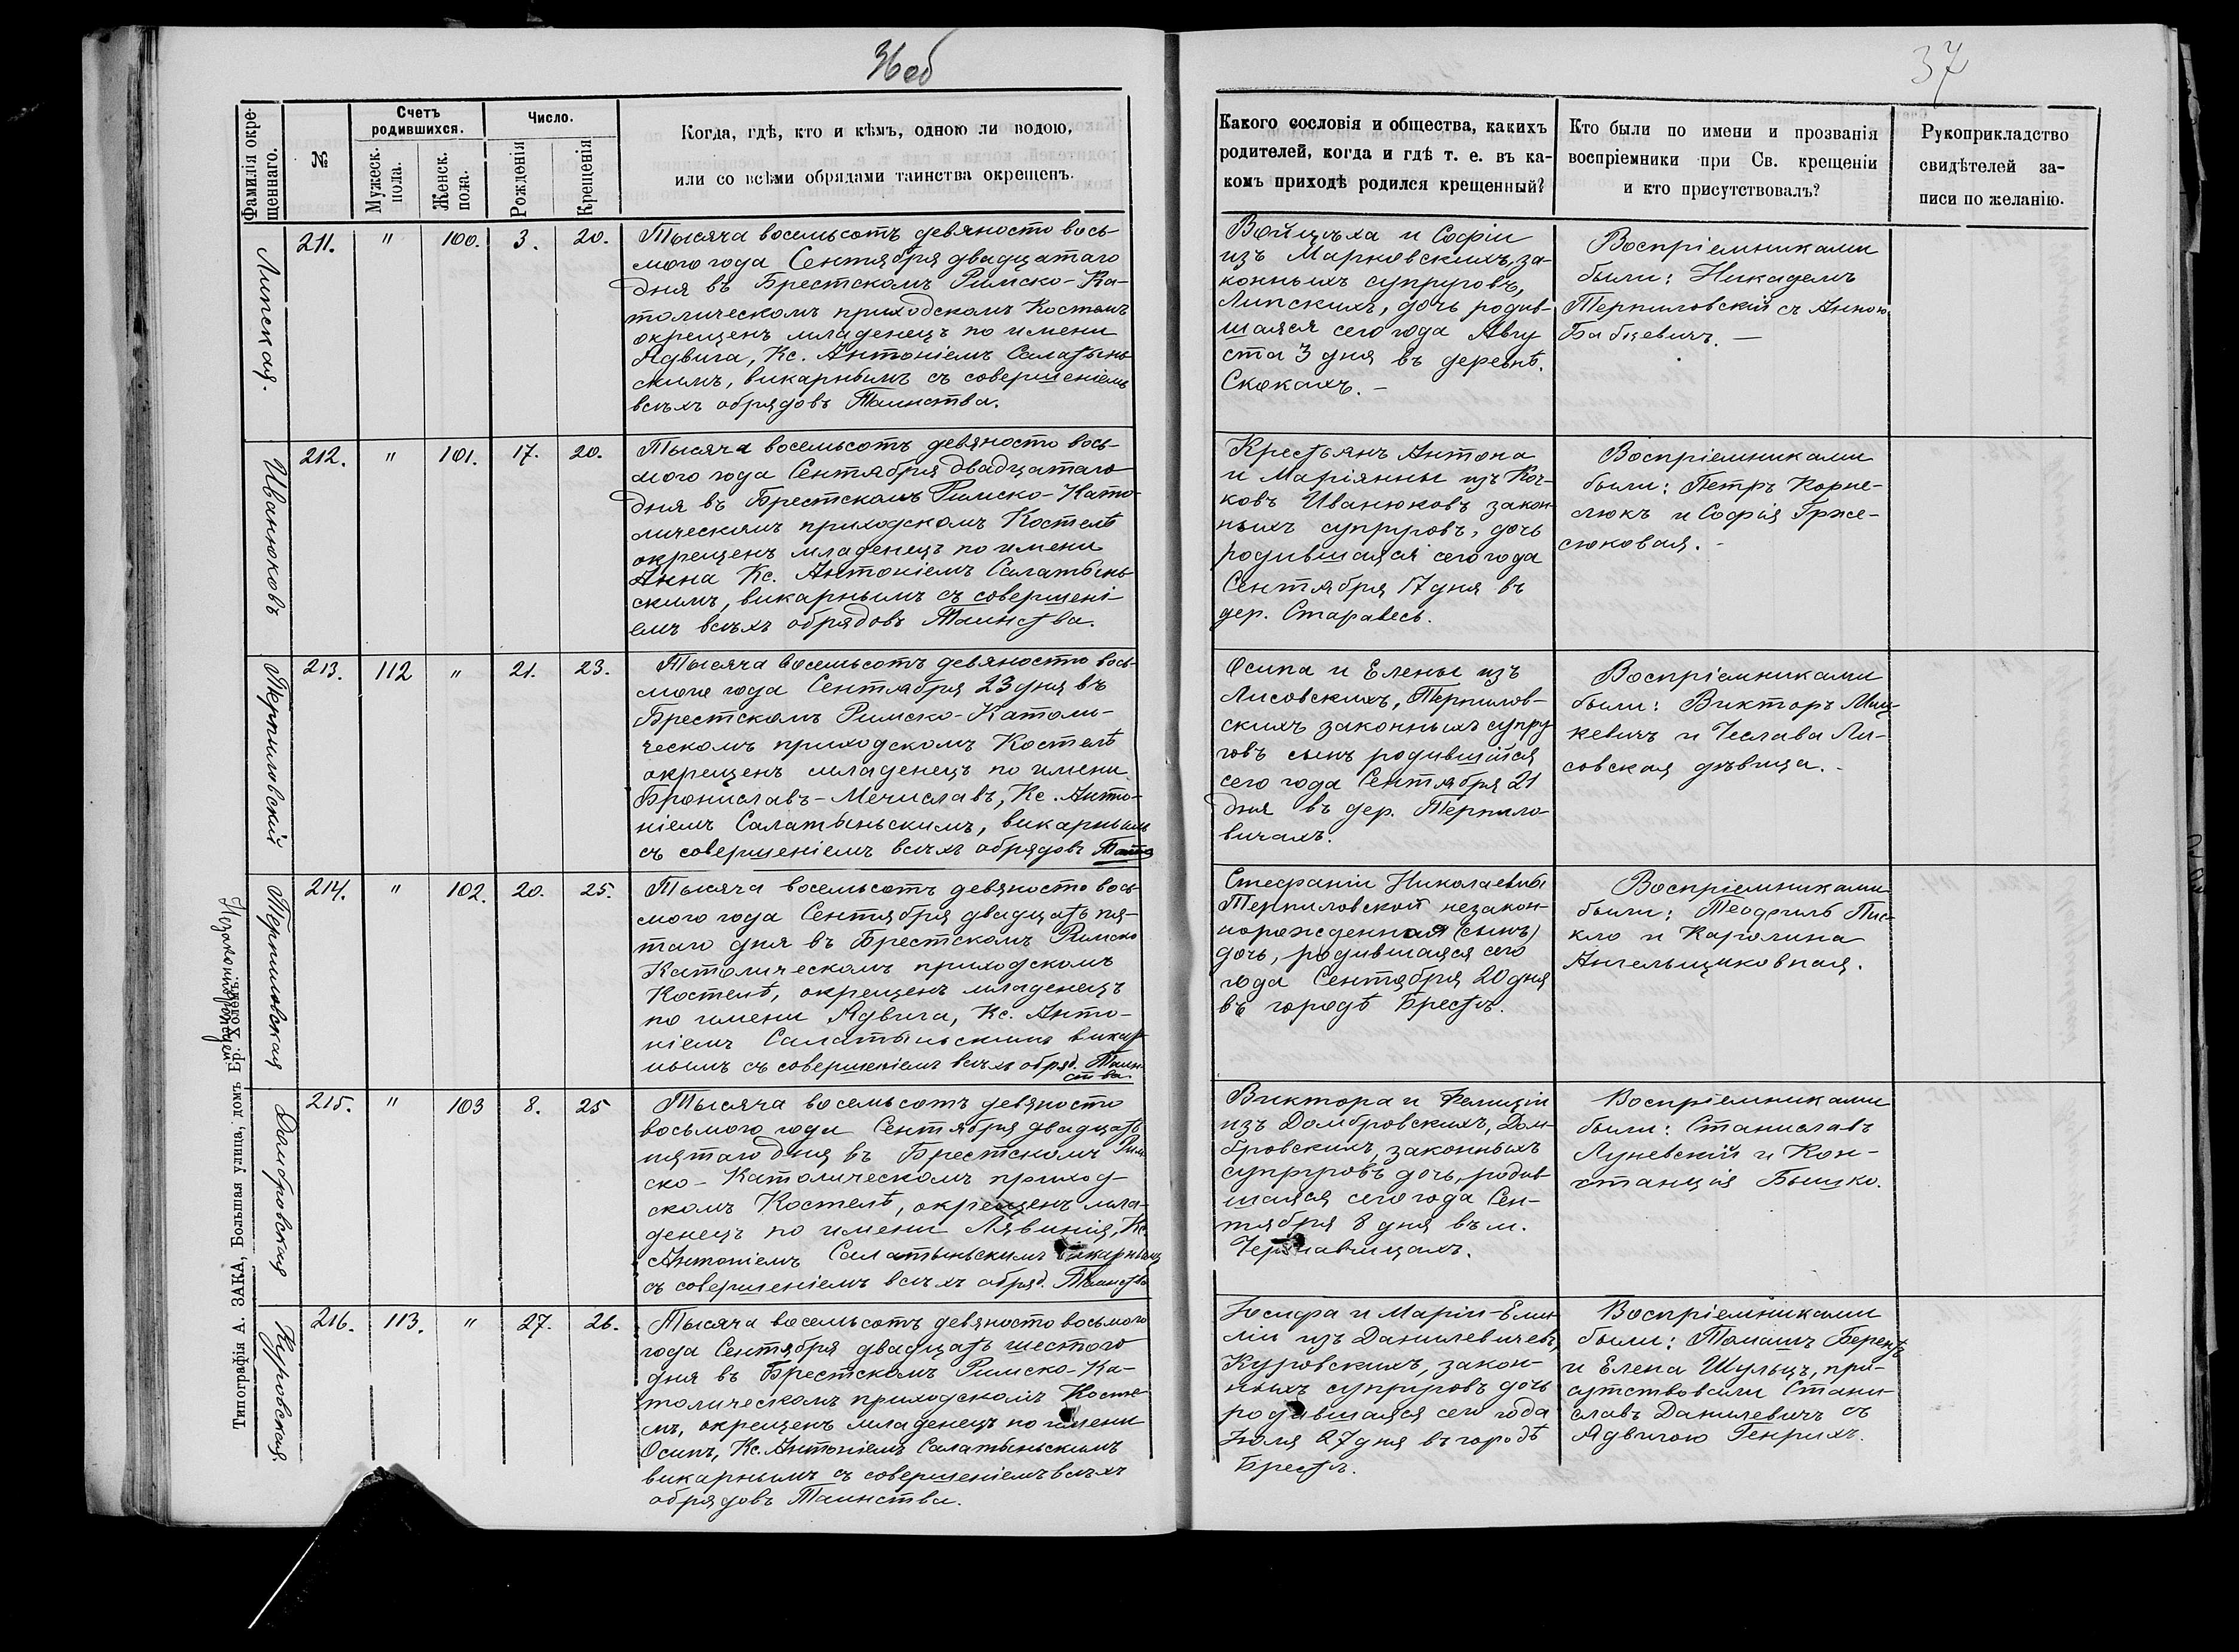 36об
37
Фамилія окре-
щеннаго.
№
Счетъ
родившихся.
Мужеск.
пола.
Женск.
пола.
Число.
Рожденія
Крещенія
Когда, гдѣ, кто и кѣмъ, одною ли водою,
или со всѣми обрядами таинства окрещенъ.
Какого сословія и общества, какихъ
родителей, когда и гдѣ т. е. въ ка-
комъ приходѣ родился крещенный?
Кто были по имени и прозванія
воспріемники при Св. крещеніи
и кто присутствовалъ?
Рукоприкладство
свидѣтелей за-
писи по желанію.
Липская.
211. " 100. 3. 20.
Тысяча восемьсотъ девяносто вось-
мого года Сентября двадцатаго
дня въ Брестскомъ Римско-Ка-
толическомъ приходскомъ Костелѣ
окрещенъ младенецъ по имени
Ядвига, Кс. Антоніемъ Салатынь-
скимъ, викарнымъ съ совершеніемъ
всѣхъ обрядовъ Таинства.
Войцѣха и Софіи
изъ Марковскихъ, за-
конныхъ супруговъ,
Липскихъ, дочь родив-
шаяся сего года Авгу
ста 3 дня въ деревнѣ
Скокахъ. –
Воспріемниками
были: Никадемъ
Терпиловскій съ Анною
Бабкевичъ. –
Иванюковъ
212. " 101. 17. 20.
Тысяча восемьсотъ девяносто вось-
мого года Сентября двадцатаго
дня въ Брестскомъ Римско-Като-
лическомъ приходскомъ Костелѣ
окрещенъ младенецъ по имени
Анна Кс. Антоніемъ Салатынь-
скимъ, викарнымъ съ совершені-
емъ всѣхъ обрядовъ Таинства.
Крестьянъ Антона
и Маріянны изъ Коч-
ковъ Иванюковъ закон-
ныхъ супруговъ, дочь
родившаяся сего года
Сентября 17 дня въ
дер. Старавесь.
Воспріемниками
были: Петръ Корне-
люкъ и Софія Грже-
сюковая. -
Терпиловскій
213. 112 " 21. 23.
Тысяча восемьсотъ девяносто вось-
мого года Сентября 23 дня въ
Брестскомъ Римско-Католи-
ческомъ приходскомъ Костелѣ
окрещенъ младенецъ по имени
Брониславъ-Мечиславъ, Кс. Анто-
ніемъ Салатыньскимъ, викарнымъ
съ совершеніемъ всѣхъ обрядовъ
Осипа и Елены изъ
Лисовскихъ, Терпилов-
скихъ законныхъ супру
говъ сынъ родившійся
сего года Сентября 21
дня въ дер. Терпило-
вичахъ.
Воспріемниками
были: Викторъ Миц-
кевичъ и Чеслава Ли-
совская дѣвица. -
Терпиловская
Незаконнорожден
214. " 102. 20. 25.
Тысяча восемьсотъ девяносто вось-
мого года Сентября двадцать пя-
таго дня въ Брестскомъ Римско
Католическомъ приходскомъ
Костелѣ, окрещенъ младенецъ
по имени Ядвига, Кс. Анто-
ніемъ Салатыньскимъ викар-
нымъ съ совершеніемъ всѣхъ обряд. Таин-
ства
Стефаніи Николаевны
Терпиловской незакон-
норожденная (сынъ)
дочь, родившаяся сего
года Сентября 20 дня
въ городѣ Брестѣ.
Воспріемниками
были: Теофиль Пис-
кло и Каролина
Ангельщиковная.
Домбровская
215. " 103 8. 25
Тысяча восемьсотъ девяносто
восьмого года Сентября двадцать
пятаго дня въ Брестскомъ Рим
ско-Католическомъ приход-
скомъ Костелѣ, окрещенъ мла-
денецъ по имени Лявинія, Кс.
Антоніемъ Салатыньскимъ викарнымъ
съ совершеніемъ всѣхъ обряд. Таинства
Виктора и Фелиціи
изъ Домбровскихъ, Дом-
бровскихъ, законныхъ
супруговъ дочь, родив-
шаяся сего года Сен-
тября 8 дня въ м.
Чернавчицахъ.
Воспріемниками
были: Станиславъ
Луневскій и Кон-
станція Бышко.
Куровская
216. 113. " 27. 26.
Тысяча восемьсотъ девяносто восьмого
года Сентября двадцать шестого
дня въ Брестскомъ Римско-Ка-
толическомъ приходскомъ Косте-
лѣ, окрещенъ младенецъ по имени
Осипъ, Кс. Антоніемъ Салатыньскимъ
викарнымъ съ совершеніемъ всѣхъ
обрядовъ Таинства.
Іосифа и Маріи-Еми-
ліи изъ Данилевичевъ,
Куровскихъ, закон-
ныхъ супруговъ дочь
родившаяся сего года
Іюля 27 дня въ городѣ
Брестѣ.
Воспріемниками
были: Томашъ Беренъ
и Елена Шульцъ, при-
сутствовали Стани-
славъ Данилевичъ съ
Ядвигою Генрихъ.
Типографія А. ЗАКА, Большая улица, домъ Бр. Холемъ.